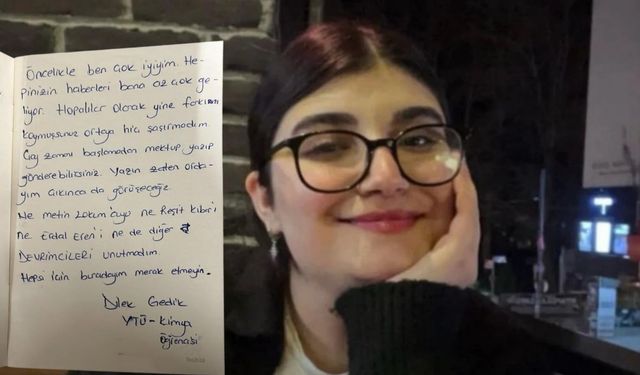 Öncelikle ben çok iyiyim. He-
pinizin haberleri bana az çok ge-
liyor. Hopalılar olarak yine farkınızı
koymuşsunuz ortaya hiç şaşırmadım.
Çay zamanı başlamadan mektup yazıp
gönderebilirsiniz. Yazın zaten orda-
yım çıkınca da görüşeceğiz.
Ne metin Lokumcuyu ne Reşit Kibar'ı
ne Erdal Eren'i ne de diğer
DEVRİMCİLERİ unutmadım.
Hepsi için buradayım merak etmeyin.
Dilek Gedik
YTÜ - Kimya
öğrencisi